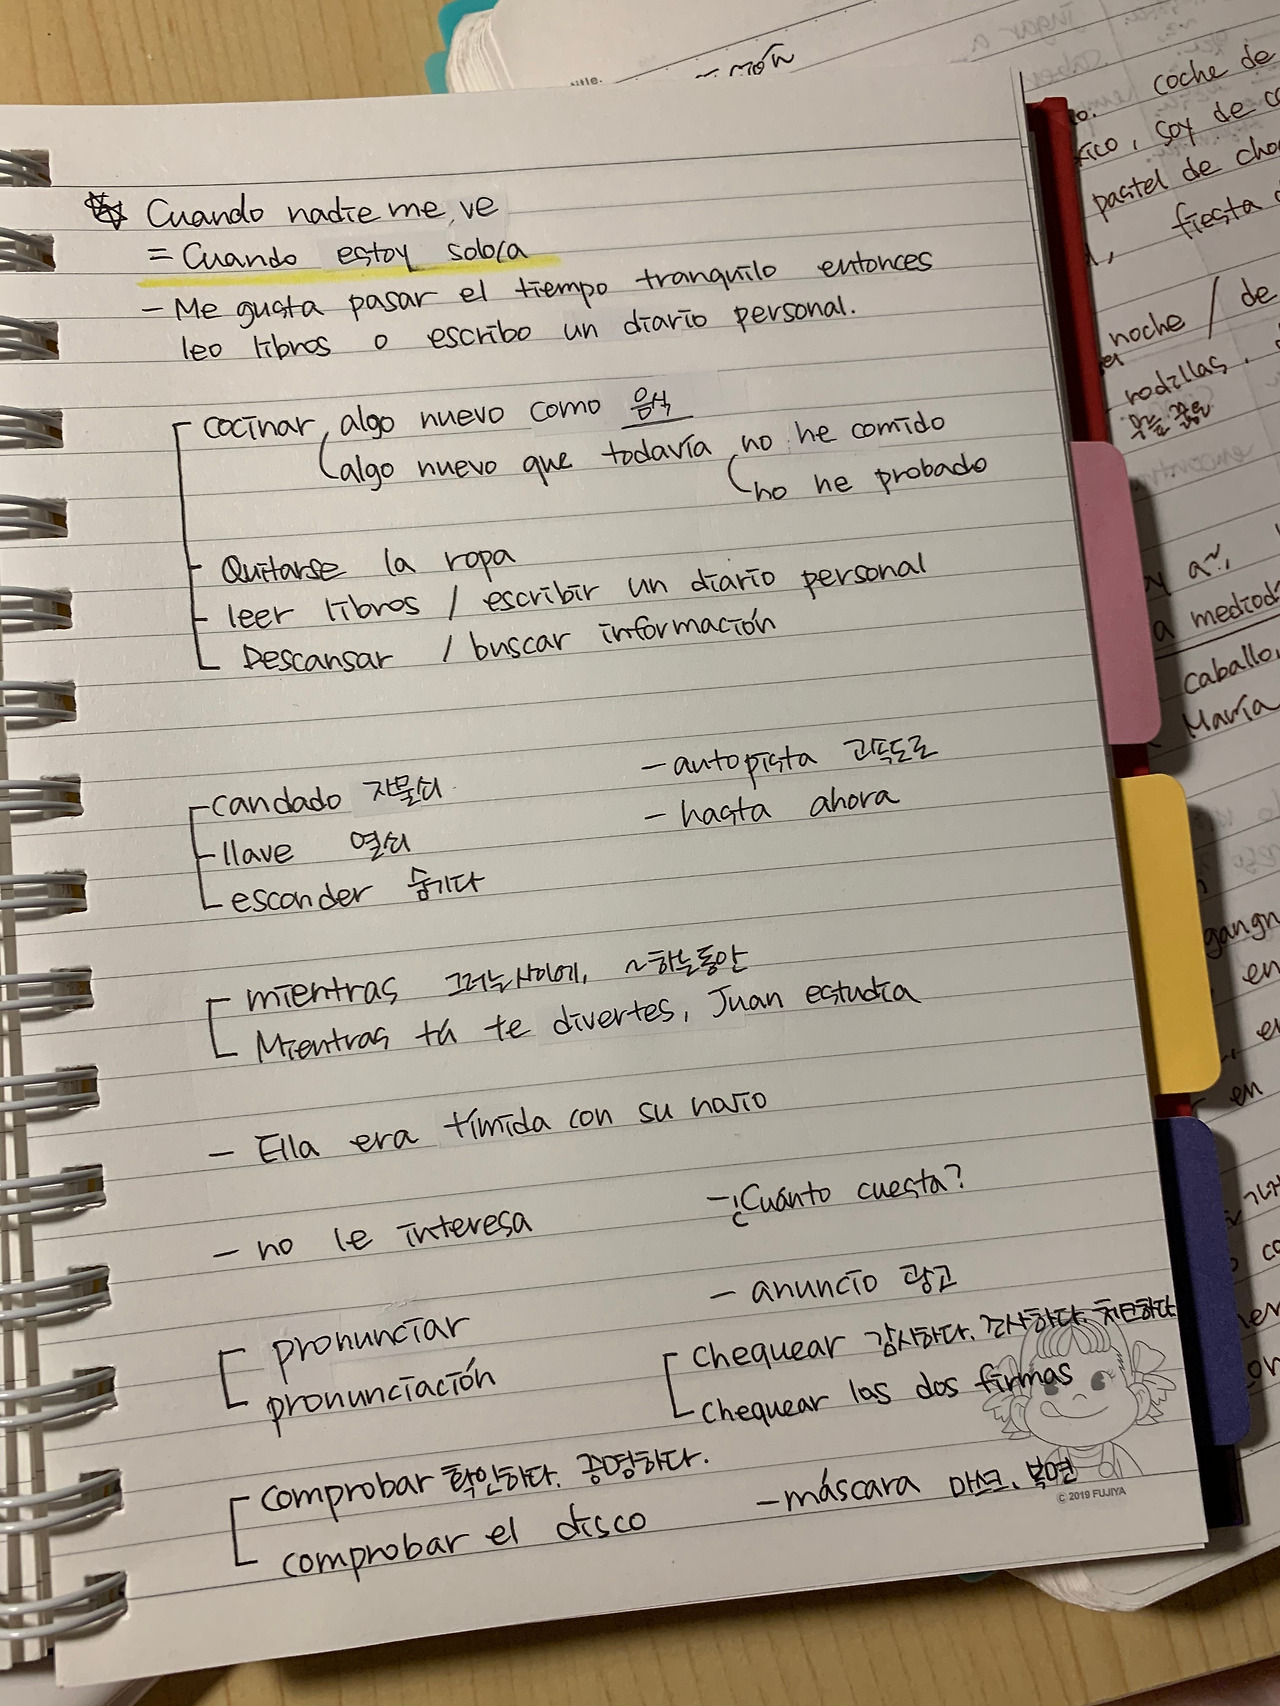 Cuando nadie me ve
= Cuando estoy solo/a
- Me gusta pasar el tiempo tranquilo entonces
leo libros o escribo un diario personal.
cocinar algo nuevo como 음식
algo nuevo que todavía no he comido
no he probado
Quitarse la ropa
leer libros / escribir un diario personal
Descansar / buscar información
candado 자물쇠
llave 열쇠
esconder 숨기다
- autopista 고속도로
- hasta ahora
mientras 그러는사이에, ~하는동안
Mientras tú te divertes, Juan estudia
- Ella era tímida con su novio
- no le interesa
- ¿Cuánto cuesta?
- anuncio 광고
pronunciar
pronunciación
chequear 감사하다. 조사하다. 체크하다
chequear las dos firmas
comprobar 확인하다. 증명하다.
comprobar el disco
- máscara 마스크, 복면
© 2019 FUJIYA
title.
coche de
xico, soy de
pastel de
fiesta
noche / de
rodillas,
무릎 꿇은
a
caballo,
María
gangn
en
en